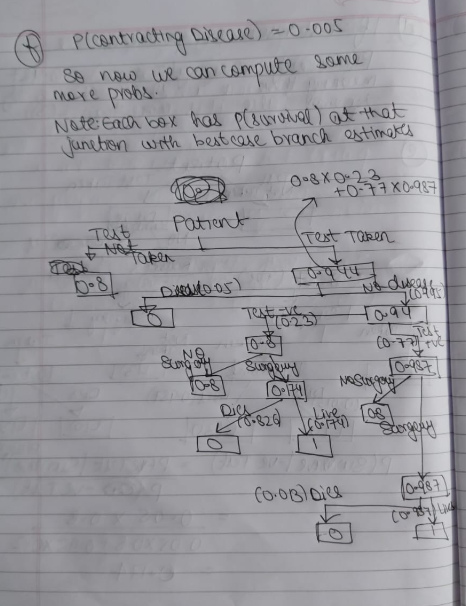 f
P(contracting Disease) = 0.005
so now we can compute some
more probs.
Note: Each box has P(survival) at that
junction with best case branch estimates
0.8 x 0.23
+ 0.77 x 0.987
Patient
Test
Not
Taken
Test Taken
0.8
0.944
Disease(0.05)
No disease
0
Test -ve
(0.23)
0.94
(0.77)
Test
+ve
0.8
0.987
No
Surgery
Surgery
No Surgery
0.8
0.74
0.8
Surgery
Dies
(0.826)
Live
(0.174)
0
1
0.987
(0.013) Dies
(0.987) Live
0
1